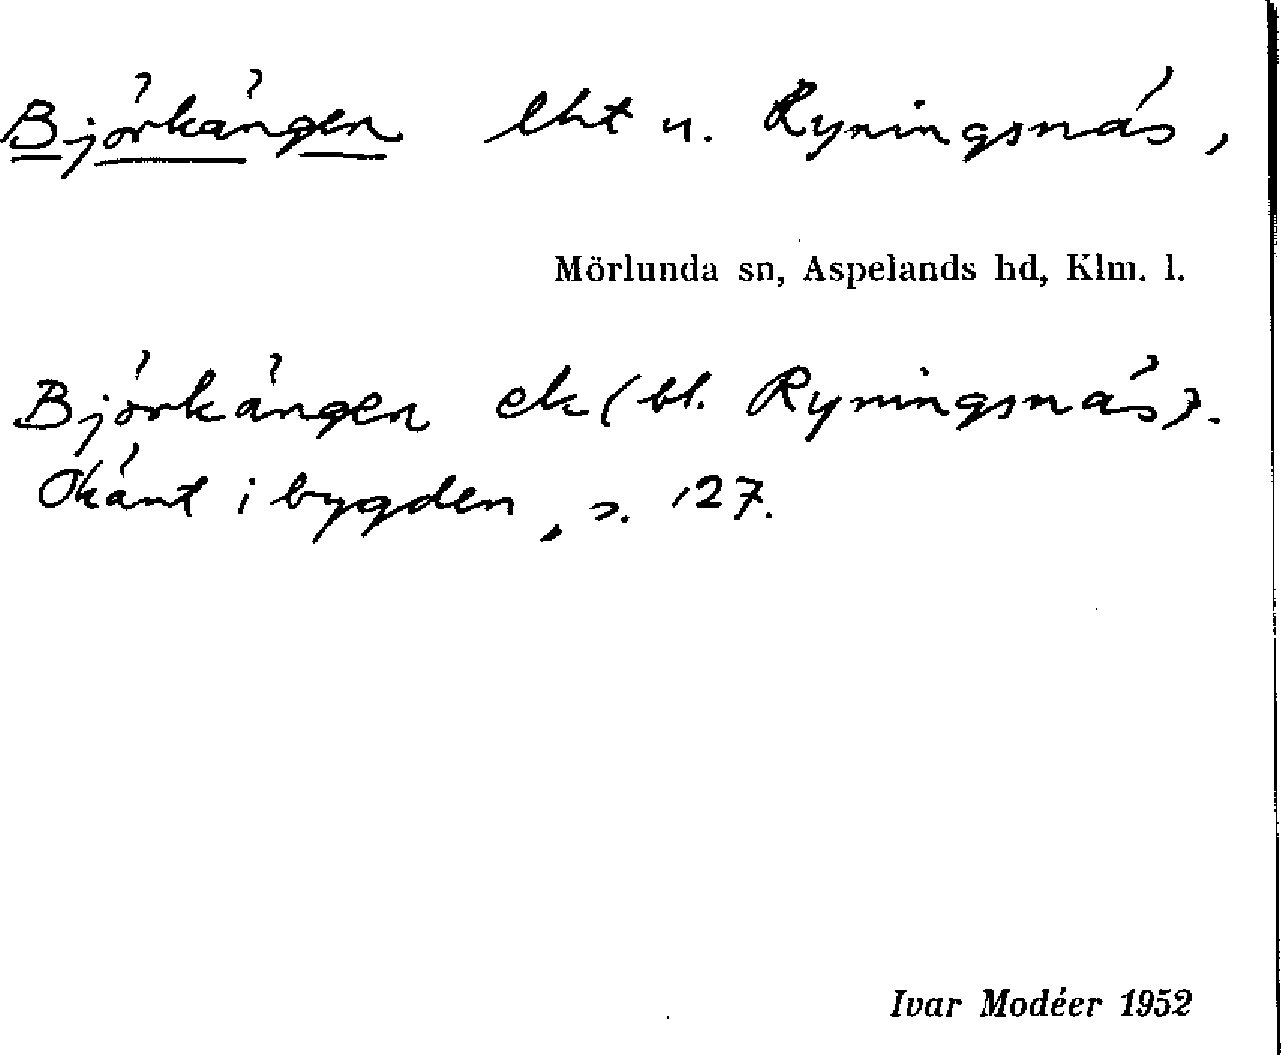 Björkängen lht u. Ryningsnäs,
Mörlunda sn, Aspelands hd, Klm. l.
Björkängen ek (bl. Ryningsnäs).
Okänt i bygden, s. 127.
Ivar Modéer 1952